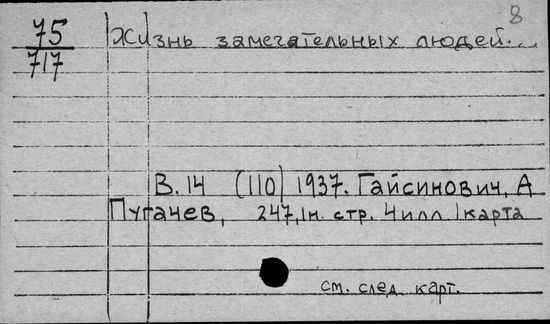 8
75
717
Жизнь замечательных людей...
В. 14 (110) 1937. Гайсинович, А
Пугачев, 247, 1н. стр. 4илл 1карта
см. след. карт.